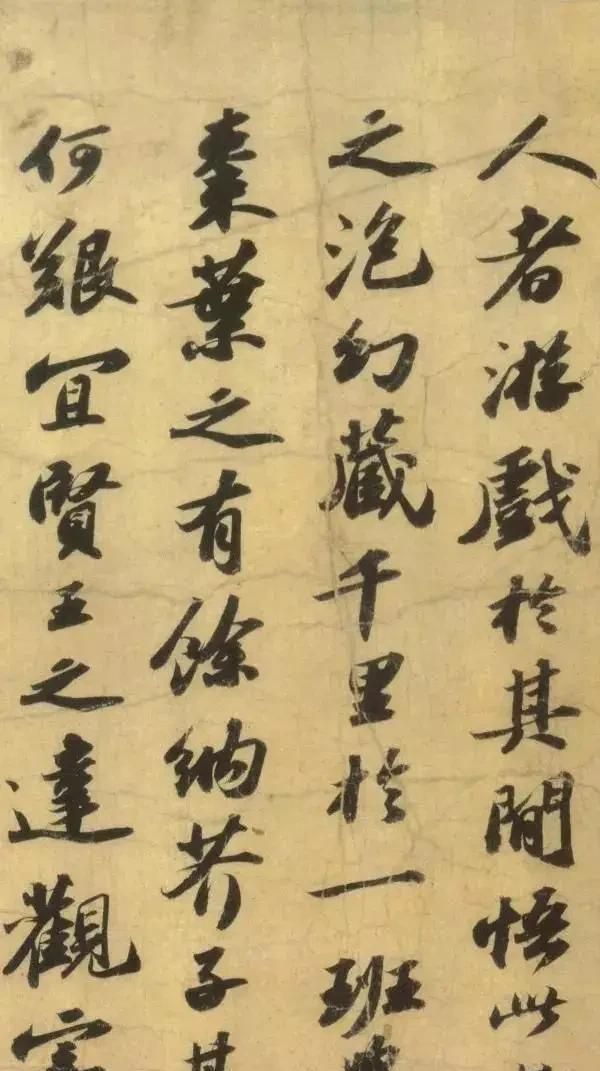 人者游戲於其間悟此
之泡幻藏千里於一班
棗葉之有餘納芥子其
何艱宜賢王之達觀